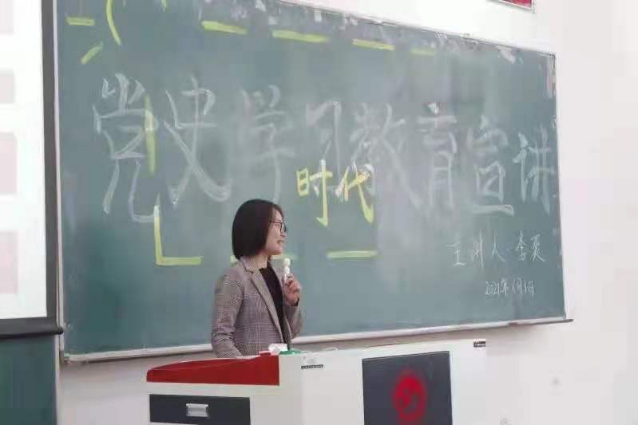 党史学习教育宣讲
时代
主讲人：李英
2021年6月3日